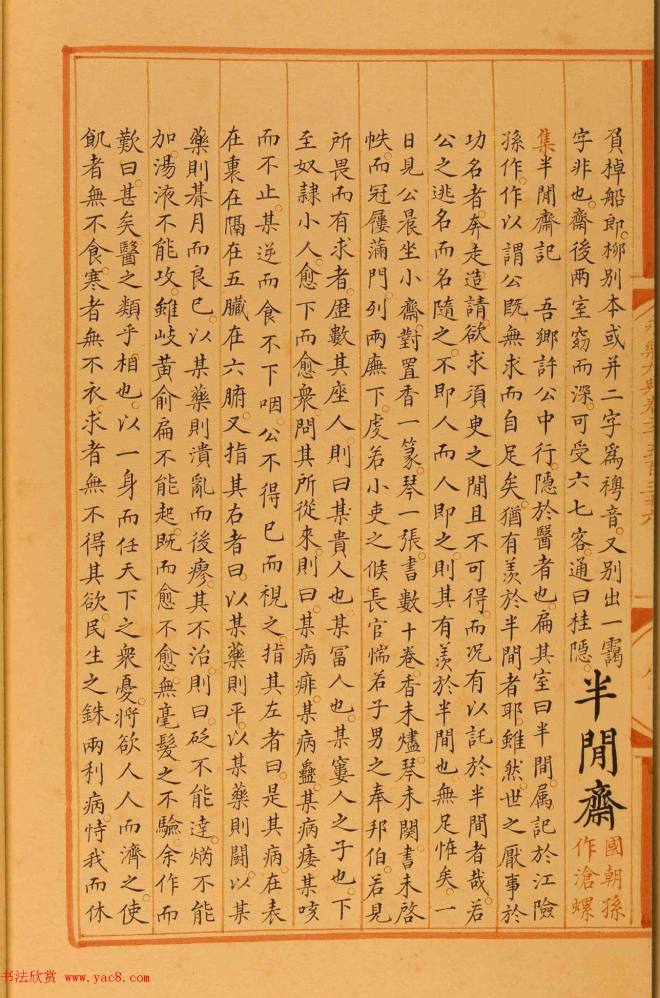 負棹船郎。柳別本或并二字為禱音。又別出一靄
字非也。齋後兩室窈而深。可受六七客。通曰桂隱。
半閒齋
國朝孫
作滄螺
集半閒齋記　吾鄉許公中行。隱於醫者也。扁其室曰半間。属記於江險
孫作。作以謂公既無求而自足矣。猶有羨於半間者耶。雖然。世之厭事於
功名者。奔走造請。欲求須臾之閒且不可得。而况有以託於半間者哉。若
公之逃名而名隨之。不即人而人即之。則其有羨於半間也無足恠矣。一
日見公晨坐小齋。對置香一篆。琴一張。書數十卷。香未燼。琴未関。書未啓
帙。而冠屨滿門。列兩廡下。虔若小吏之候長官。惴若子男之奉邦伯。若見
所畏而有求者。歷數其座人。則曰某貴人也。某冨人也。某窶人之子也。下
至奴隸小人。愈下而愈衆。問其所從來。則曰。某病痱。某病蠱。某病痿。某咳
而不止。某逆而食不下咽。公不得已而視之。指其左者曰。是其病在表
在裏在隔在五臟在六腑。又指其右者曰。以某藥則平。以某藥則鬪。以某
藥則朞月而良已。以某藥則潰亂而後瘳。其不治則曰。砭不能達。焫不能
加。湯液不能攻。雖岐黃俞扁不能起。既而愈不愈。無毫髮之不驗。余作而
歎曰。甚矣。醫之類乎相也。以一身而任天下之衆憂。將欲人人而濟之。使
飢者無不食。寒者無不衣。求者無不得其欲。民生之銖兩利病。恃我而休
书法欣赏 www.yac8.com